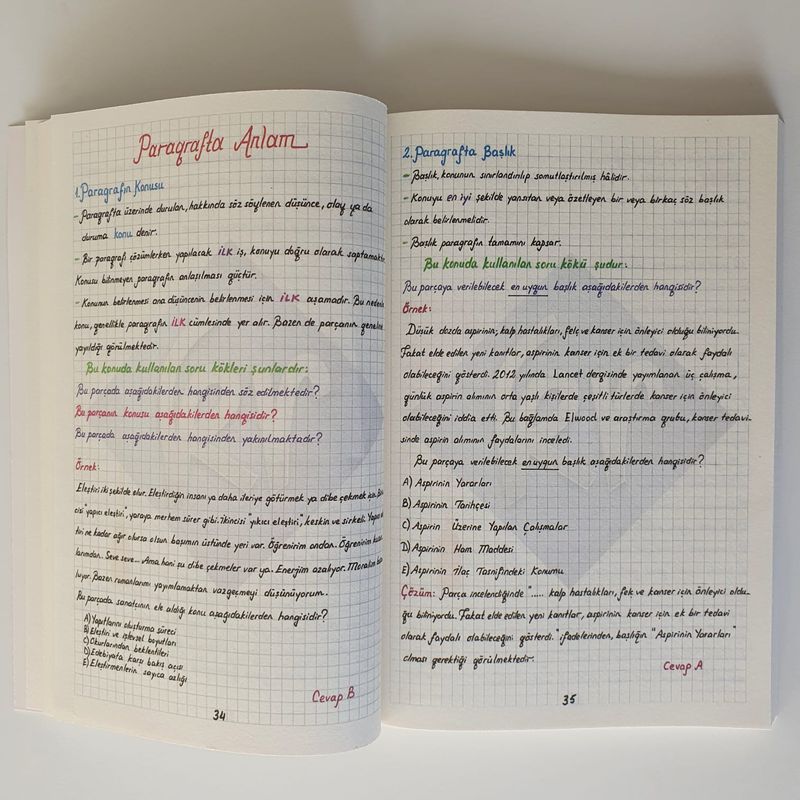 Paragrafta Anlam
1.Paragrafın Konusu
- Paragrafta üzerinde durulan, hakkında söz söylenen düşünce, olay ya da
duruma konu denir.
- Bir paragraf çözümlerken yapılacak İLK iş, konuyu doğru olarak saptamaktır.
Konusu bilinmeyen paragrafın anlaşılması güçtür.
- Konunun belirlenmesi ana düşüncenin belirlenmesi için İLK aşamadır. Bu nedenle
konu, genellikle paragrafın İLK cümlesinde yer alır. Bazen de parçanın geneline
yayıldığı görülmektedir.
Bu konuda kullanılan soru kökleri şunlardır:
Bu parçada aşağıdakilerden hangisinden söz edilmektedir?
Bu parçanın konusu aşağıdakilerden hangisidir?
Bu parçada aşağıdakilerden hangisinden yakınılmaktadır?
Örnek:
Eleştiri iki şekilde olur. Eleştirdiğin insanı ya daha ileriye götürmek ya dibe çekmek için.
cisi "yapıcı eleştiri", yaraya merhem sürer gibi. İkincisi "yıkıcı eleştiri", keskin ve sirkeli.
tiri ne kadar ağır olursa olsun başımın üstünde yeri var. Öğrenirim ondan. Öğrenirim
larımdan. Seve seve... Ama hani şu dibe çekmeler var ya. Enerjim azalıyor. Moralim
luyor. Bazen romanlarımı yayımlamaktan vazgeçmeyi düşünüyorum.
Bu parçada sanatçının ele aldığı konu aşağıdakilerden hangisidir?
A) Yapıtlarını oluşturma süreci
B) Eleştiri ve işlevsel boyutları
C) Okurlarından beklentileri
D) Edebiyata karşı bakış açısı
E) Eleştirmenlerin sayıca azlığı
Cevap B
34
2.Paragrafta Başlık
- Başlık, konunun sınırlandırılıp somutlaştırılmış hâlidir.
- Konuyu en iyi şekilde yansıtan veya özetleyen bir veya birkaç söz başlık
olarak belirlenmelidir.
- Başlık paragrafın tamamını kapsar.
Bu konuda kullanılan soru kökü şudur:
Bu parçaya verilebilecek en uygun başlık aşağıdakilerden hangisidir?
Örnek:
Düşük dozda aspirinin; kalp hastalıkları, felç ve kanser için önleyici olduğu biliniyordu.
Fakat elde edilen yeni kanıtlar, aspirinin kanser için ek bir tedavi olarak faydalı
olabileceğini gösterdi. 2012 yılında Lancet dergisinde yayımlanan üç çalışma,
günlük aspirin alımının orta yaşlı kişilerde çeşitli türlerde kanser için önleyici
olabileceğini iddia etti. Bu bağlamda Elwood ve araştırma grubu, kanser tedavi-
sinde aspirin alımının faydalarını inceledi.
Bu parçaya verilebilecek en uygun başlık aşağıdakilerden hangisidir?
A) Aspirinin Yararları
B) Aspirinin Tarihçesi
C) Aspirin Üzerine Yapılan Çalışmalar
D) Aspirinin Ham Maddesi
E) Aspirinin İlaç Tasnifindeki Konumu
Çözüm: Parça incelendiğinde "..... kalp hastalıkları, felç ve kanser için önleyici oldu-
ğu biliniyordu. Fakat elde edilen yeni kanıtlar, aspirinin kanser için ek bir tedavi
olarak faydalı olabileceğini gösterdi. "ifadelerinden, başlığın "Aspirinin Yararları"
olması gerektiği görülmektedir.
Cevap A
35